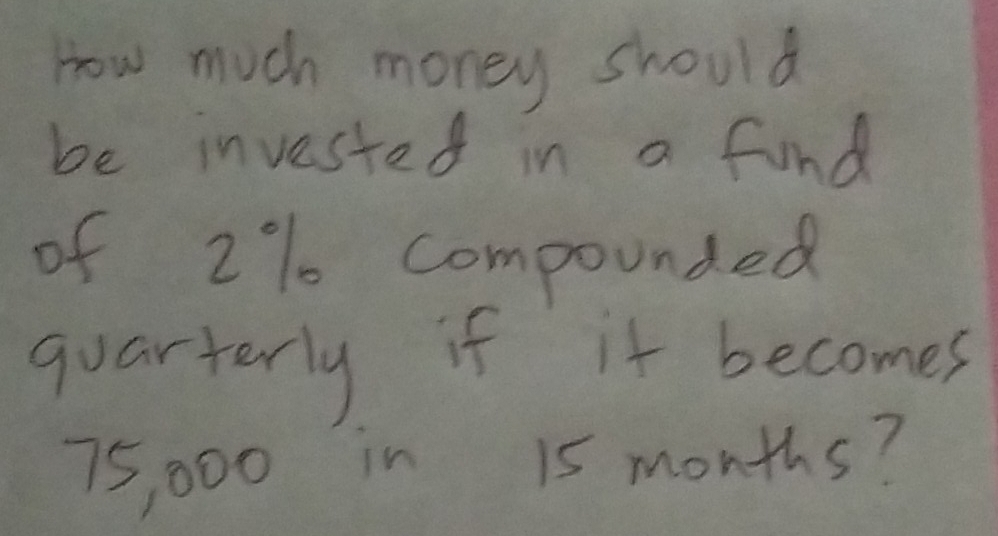 How much money should
be invested in a fund
of 2% compounded
quarterly if it becomes
75,000 in 15 months?